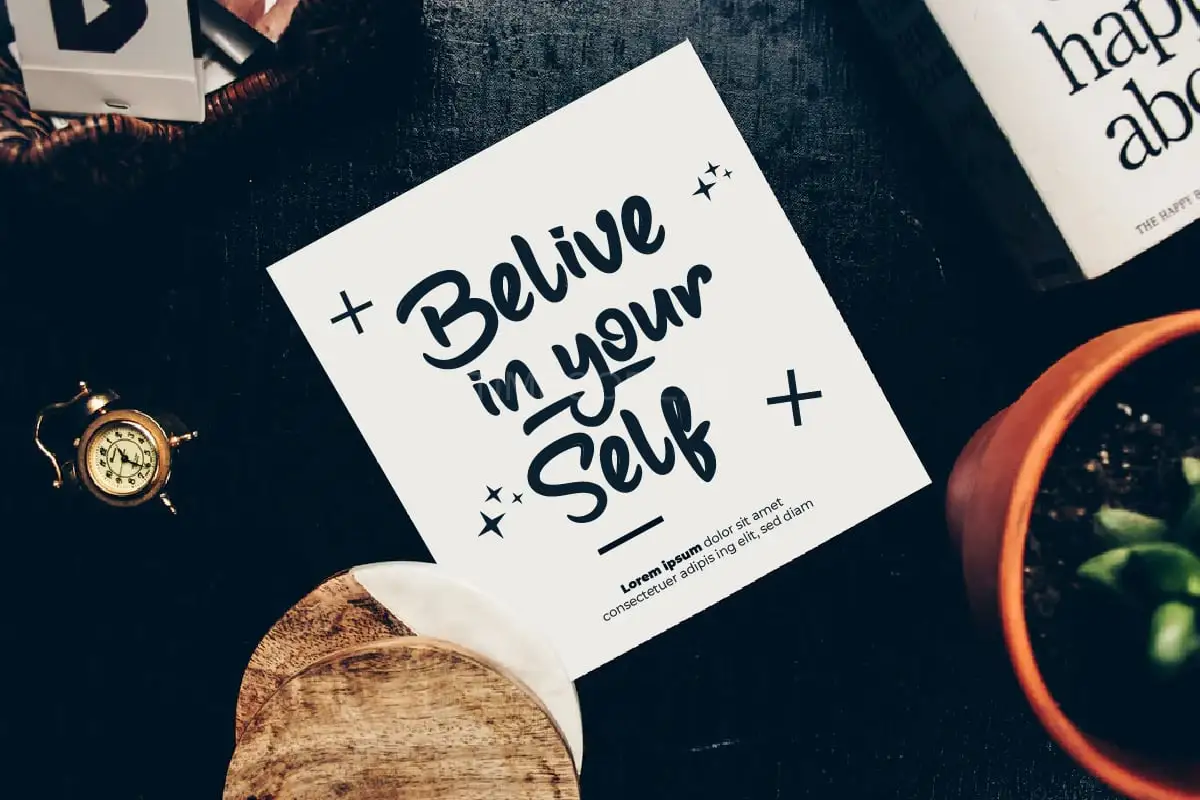 Belive
in your
Self
Lorem ipsum dolor sit amet
consectetuer adipis ing elit, sed diam
THE HAPPY